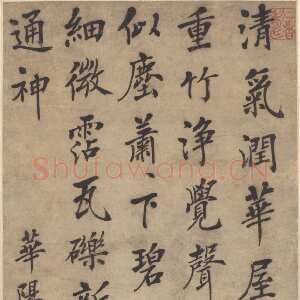 清氣潤華屋
重竹淨覺聲
似塵蕭下碧
細微霑瓦礫新
通神
華陽
Shufawang.CN